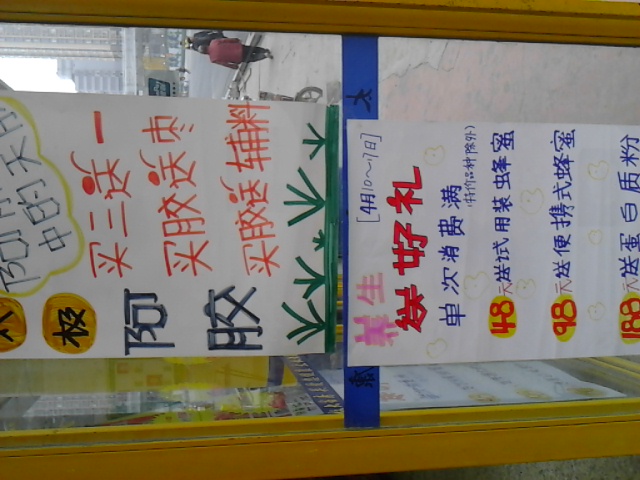 中的天
太极
阿胶
买三送一
买胶送枣
买胶送辅料
太
[4月10~17日]
养生
送好礼
单次消费满
(特价品种除外)
48元送试用装蜂蜜
98元送便携式蜂蜜
188元送蛋白质粉